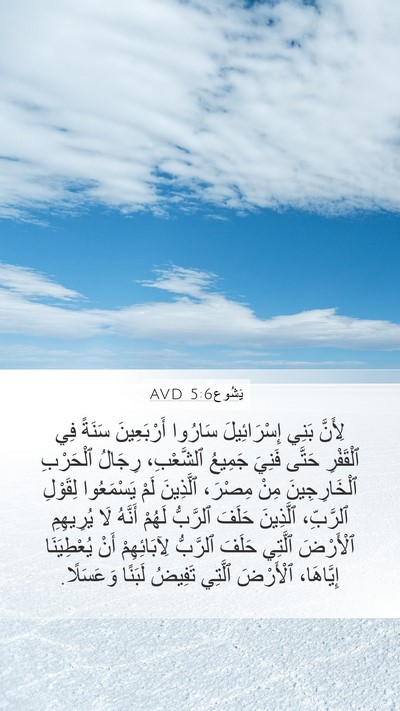 يَشُوع 5:6 AVD
لِأَنَّ بَنِي إِسْرَائِيلَ سَارُوا أَرْبَعِينَ سَنَةً فِي
ٱلْقَفْرِ حَتَّى فَنِيَ جَمِيعُ ٱلشَّعْبِ، رِجَالُ ٱلْحَرْبِ
ٱلْخَارِجِينَ مِنْ مِصْرَ، ٱلَّذِينَ لَمْ يَسْمَعُوا لِقَوْلِ
ٱلرَّبِّ، ٱلَّذِينَ حَلَفَ ٱلرَّبُّ لَهُمْ أَنَّهُ لَا يُرِيهِمِ
ٱلْأَرْضَ ٱلَّتِي حَلَفَ ٱلرَّبُّ لِآبَائِهِمْ أَنْ يُعْطِيَنَا
إِيَّاهَا، ٱلْأَرْضَ ٱلَّتِي تَفِيضُ لَبَنًا وَعَسَلًا.